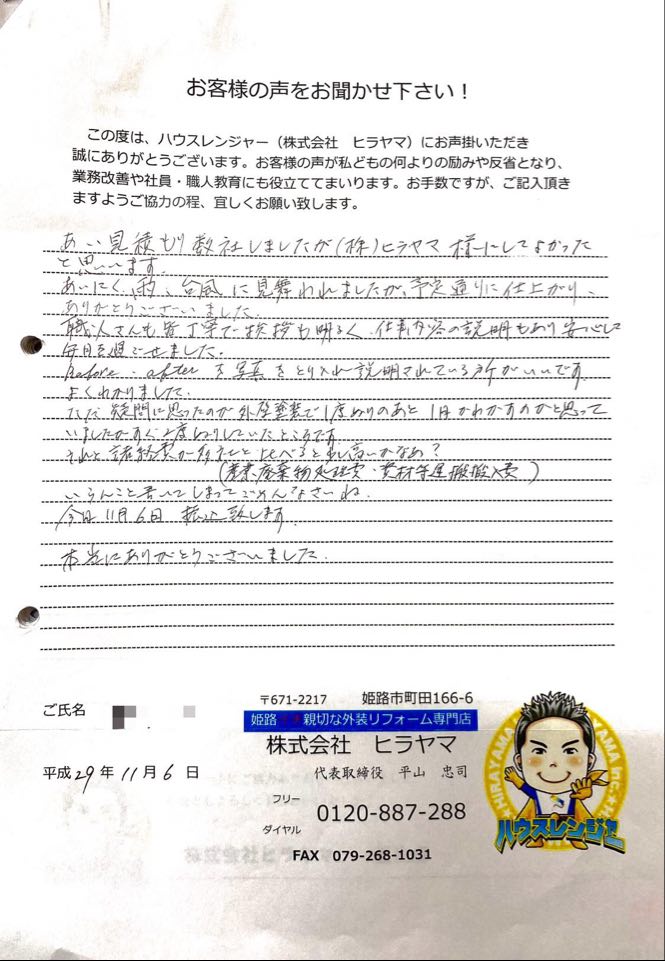 お客様の声をお聞かせ下さい！
この度は、ハウスレンジャー（株式会社　ヒラヤマ）にお声掛いただき
誠にありがとうございます。お客様の声が私どもの何よりの励みや反省となり、
業務改善や社員・職人教育にも役立ててまいります。お手数ですが、ご記入頂き
ますようご協力の程、宜しくお願い致します。
あい見積もり数社しましたが(株)ヒラヤマ様にしてよかった
と思います。
あいにく、雨、台風に見舞われましたが、予定通りに仕上がり、
ありがとうございました。
職人さんも皆丁寧で挨拶も明るく、仕事内容の説明もあり安心して
毎日を過ごせました。
before・afterを写真をとり入れ説明されている所がいいです
よくわかりました。
ただ疑問に思ったのが外壁塗装で1度ぬりのあと1日かわかすのかと思って
いましたがすぐ2度ぬりしていたところです。
それと諸経費が他社と比べると少し高いかなあ？
(産業廃棄物処理費・資材等運搬搬入費)
いろんなこと書いてしまってごめんなさいね。
今日11月6日 振込致します。
本当にありがとうございました。
ご氏名
〒671-2217　姫路市町田166-6
姫路 親切な外装リフォーム専門店
株式会社　ヒラヤマ
平成29年11月6日
代表取締役　平山　忠司
フリー
ダイヤル
0120-887-288
FAX　079-268-1031
HIRAYAMA INC.
ハウスレンジャー